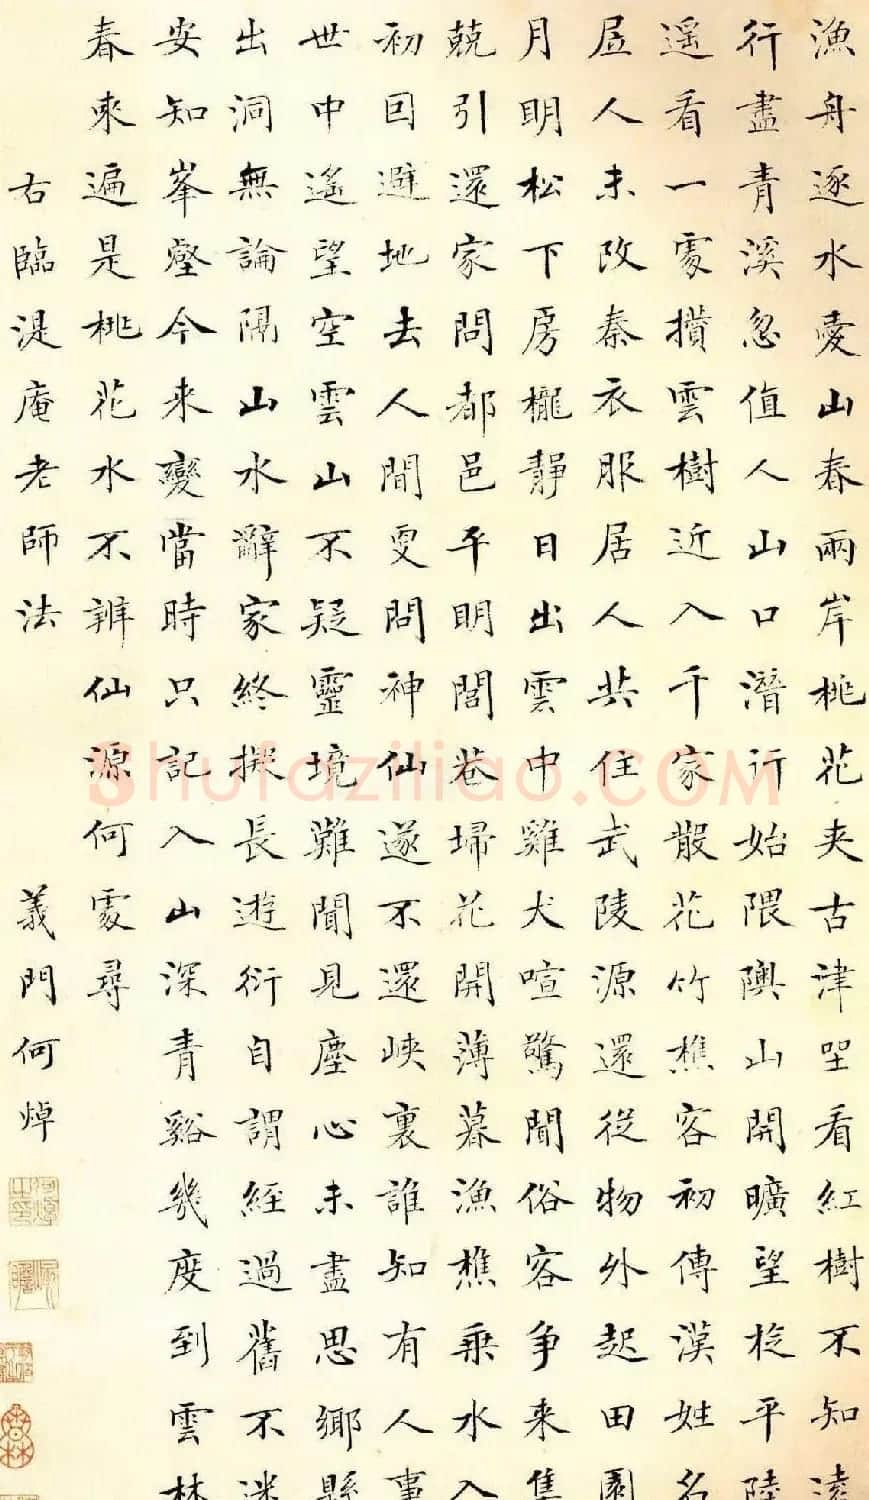 漁舟逐水愛山春兩岸桃花夾古津坐看紅樹不知遠
行盡青溪忽值人山口潛行始隈隩山開曠望旋平陸
遥看一處攢雲樹近入千家散花竹樵客初傳漢姓名
居人未改秦衣服居人共住武陵源還從物外起田園
月明松下房櫳靜日出雲中雞犬喧驚聞俗客争来集
競引還家問都邑平明閭巷埽花開薄暮漁樵乘水入
初因避地去人間更問神仙遂不還峽裏誰知有人事
世中遙望空雲山不疑靈境難聞見塵心未盡思鄉縣
出洞無論隔山水辭家終擬長遊衍自謂經過舊不迷
安知峯壑今来變當時只記入山深青谿幾度到雲林
春來遍是桃花水不辨仙源何處尋
右臨湜庵老師法
義門何焯
Shufaziliao.COM